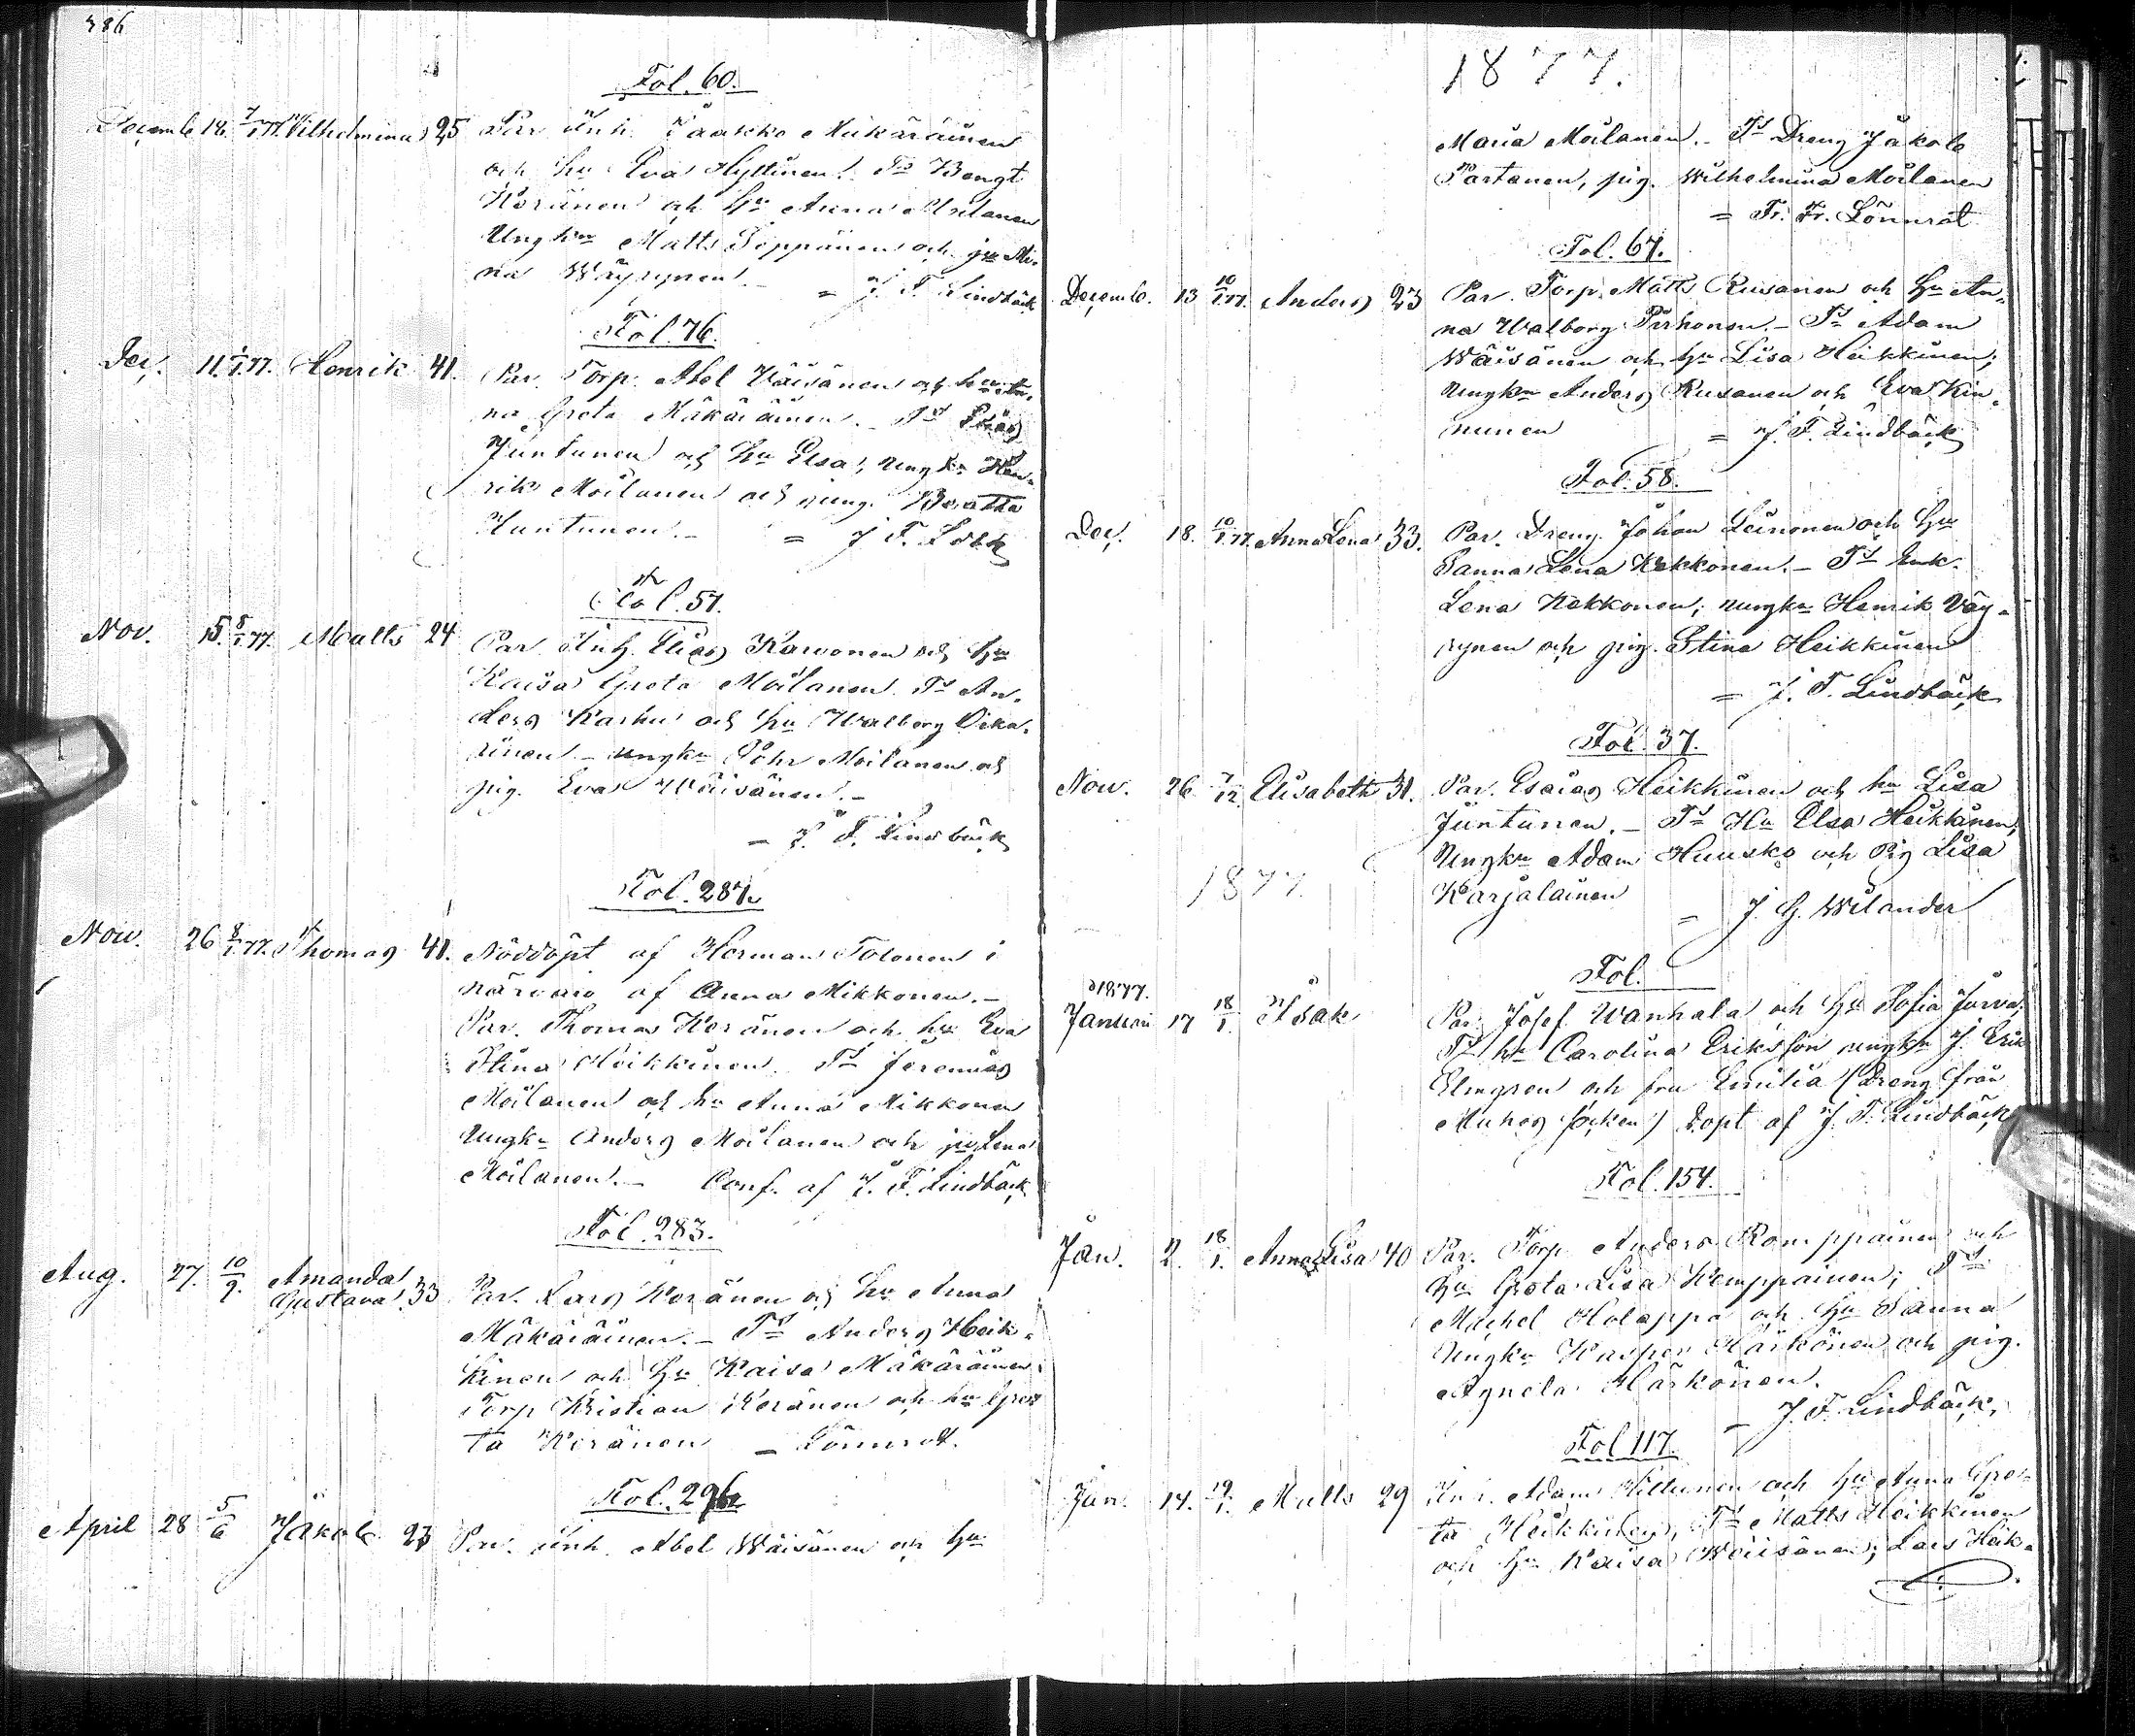 386
Fol. 60.
Decemb 18. 7/1.77. Wilhelmina 25 Par. Inh. Paavkko Mäkäräinen
och hu Eva Hyttinen. Ts Bengt
Keränen och hu Anna Moilanen
Ungkn Matts Seppänen och jgu Mi-
na Wäyrynen. = J. F. Lindbäck
Fol. 76.
Dec. 11. 7/1.77. Henrik 41. Par. Torp. Abel Väisänen och hu An-
na Greta Mäkäräinen. - Ts Elias
Juntunen och hu Elsa; ungkn Hen-
rik Moilanen och jung. Beatta
Juntunen. - = J. F. Ldbk
Fol. 57.
Nov. 15. 8/1.77. Matts 24 Par. Inh. Elias Karvonen och hu
Kaisa Greta Moilanen. Ts An-
ders Karhu och hu Walborg Oika-
rinen - ungkn Pehr Moilanen och
pig. Eva Wäisänen. -
= J. F. Lindbäck
Fol. 287.
Nov. 26 8/1.77. Thomas 41. Nöddöpt af Herman Tolonen i
närvaro af Anna Mikkonen. -
Par. Thomas Keränen och hu Eva
Stina Heikkinen. Ts Jeremias
Moilanen och hu Anna Mikkonen
Ungkn Anders Moilanen och jgu Lena
Moilanen. - Conf. af J. F. Lindbäck
Fol. 283.
Aug. 27. 10/9. Amanda
Gustava 33 Par. Lars Keränen och hu Anna
Mäkäräinen. - Ts Anders Heik-
kinen och hu Kaisa Mäkäräinen
Torp Kristian Keränen och hu Gre-
ta Keränen = Lönnrot.
Fol. 296
April 28 5/6 Jakob 23 Par. inh. Abel Wäisänen och hu
1877.
Maria Moilanen. - Ts Dreng Jakob
Partanen, pig. Wilhelmina Moilanen
= Fr. Fr. Lönnrot
Fol. 67.
Decemb. 13 10/1.77. Anders 23 Par. Torp. Matts Rusanen och hu An-
na Walborg Pirhonen. - Ts Adam
Wäisänen och hu Lisa Heikkinen;
Ungkn Anders Rusanen och Eva Kin-
nunen = J. F. Lindbäck
Fol. 58.
Dec. 18. 10/1.77. Anna Lena 33. Par. Dreng Johan Leinonen och hu
Sanna Lena Kekkonen. - Ts Enk.
Lena Kekkonen; ungkn Henrik Väy-
rynen och pig. Stina Heikkinen
= J. F. Lindbäck
Fol. 37.
Nov. 26 7/12 Elisabeth 31. Par. Esaias Heikkinen och hu Lisa
Juntunen. - Ts Hu Elsa Heikkinen,
Ungkn Adam Huusko och Pig Lisa
1877. Karjalainen
= J. G. Wilander
Fol.
1877.
Januari 17 18/1. Isak Par. Josef Wanhala och hu Sofia Jurva;
Ts hu Carolina Eriksson ungkn J. Erik
Elmgren och fru Emilia (Dreng från
Muhos socken) döpt af J. F. Lindbäck
Fol. 154.
Jan. 2. 18/1. Anna Lisa 40 Par. Torp Anders Romppainen och
hu Greta Lisa Kemppainen; Ts
Michel Holappa och hu Sanna
Ungkn Kasper Härkönen och pig.
Agneta Härkönen.
= J. F. Lindbäck
Fol 117.
Jan. 14. 19/1. Matts 29 Inh. Adam Kiltunen och hu Anna Gre-
ta Heikkinen, Ts Matts Heikkinen
och hu Kaisa Wäisänen; Lars Heik-